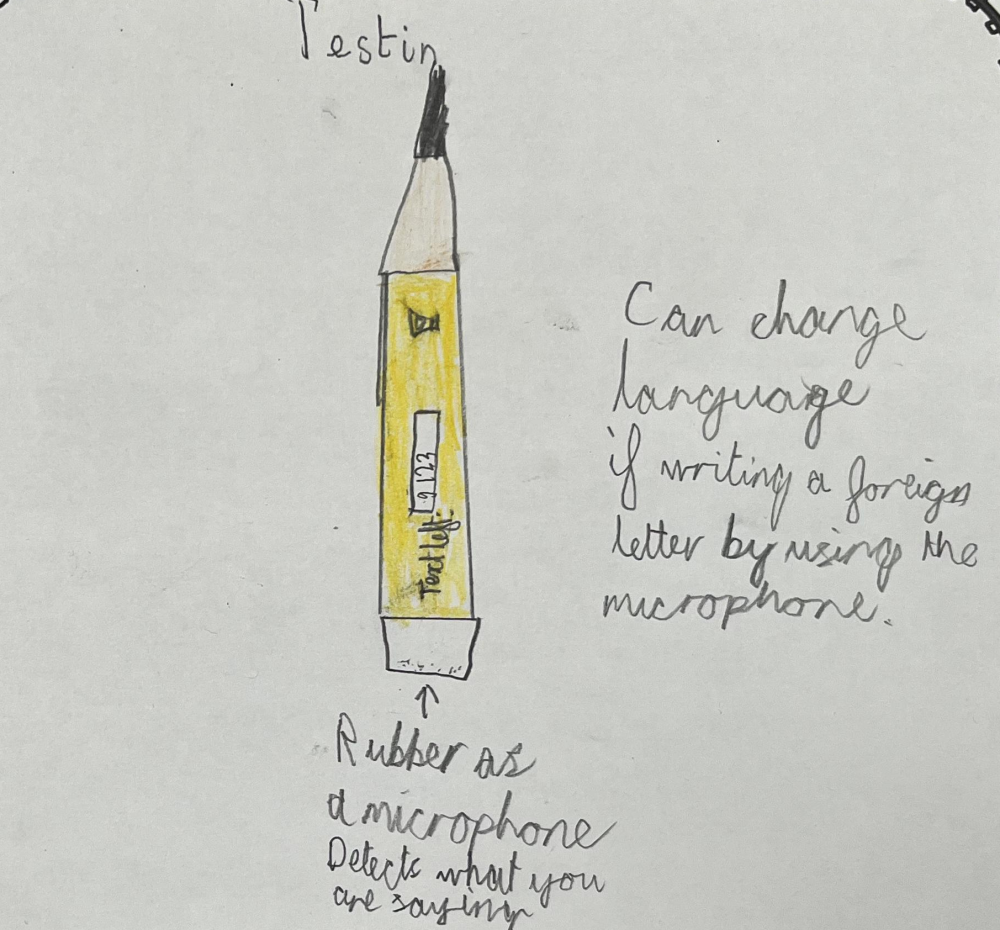 Testin
Can change
language
if writing a foreign
letter by using the
microphone.
9123
Text left:
Rubber as
a microphone
Detects what you
are saying